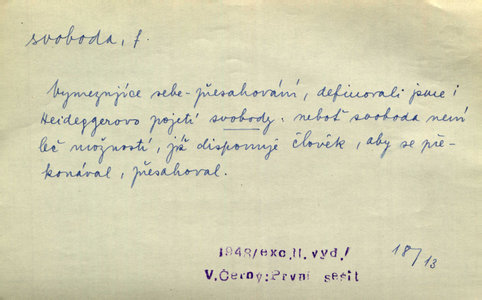 svoboda, f.
Vymezujíce sebe-přesahování, definovali jsme i
Heideggerovo pojetí svobody: neboť svoboda není
leč možností, jíž disponuje člověk, aby se pře-
konával, přesahoval.
1948/exc.II.vyd./
V.Černý:První sešit
18/13